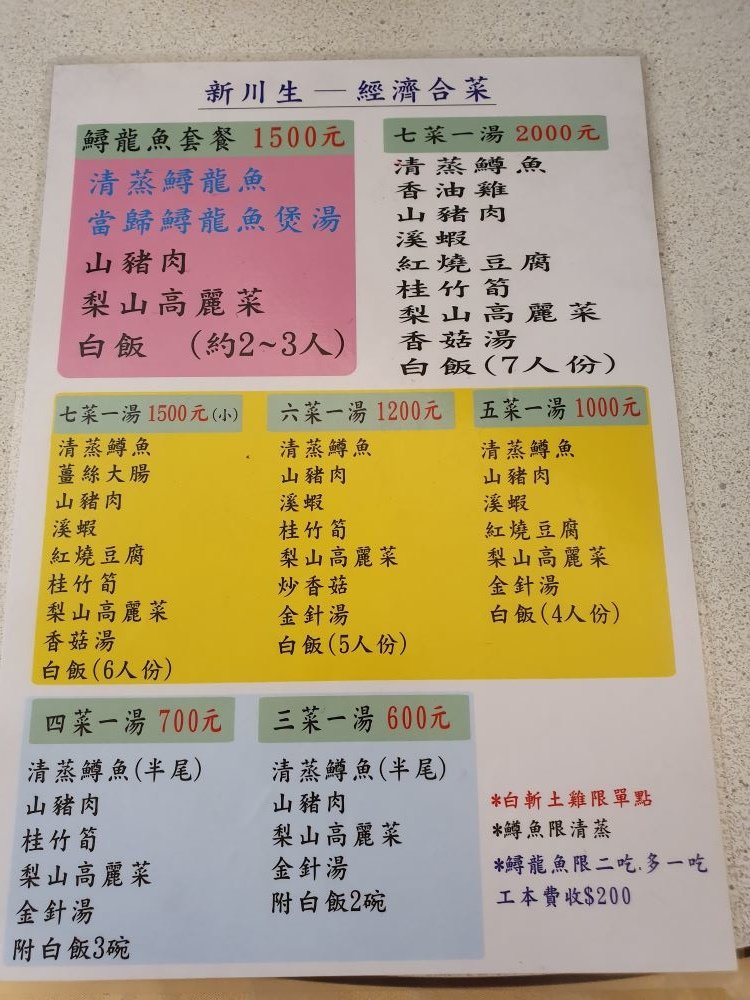 新川生 — 經濟合菜
鱘龍魚套餐 1500元
清蒸鱘龍魚
當歸鱘龍魚煲湯
山豬肉
梨山高麗菜
白飯 (約2~3人)
七菜一湯 2000元
清蒸鱒魚
香油雞
山豬肉
溪蝦
紅燒豆腐
桂竹筍
梨山高麗菜
香菇湯
白飯(7人份)
七菜一湯 1500元(小)
清蒸鱒魚
薑絲大腸
山豬肉
溪蝦
紅燒豆腐
桂竹筍
梨山高麗菜
香菇湯
白飯(6人份)
六菜一湯 1200元
清蒸鱒魚
山豬肉
溪蝦
桂竹筍
梨山高麗菜
炒香菇
金針湯
白飯(5人份)
五菜一湯 1000元
清蒸鱒魚
山豬肉
溪蝦
紅燒豆腐
梨山高麗菜
金針湯
白飯(4人份)
四菜一湯 700元
清蒸鱒魚(半尾)
山豬肉
桂竹筍
梨山高麗菜
金針湯
附白飯3碗
三菜一湯 600元
清蒸鱒魚(半尾)
山豬肉
梨山高麗菜
金針湯
附白飯2碗
*白斬土雞限單點
*鱒魚限清蒸
*鱘龍魚限二吃.多一吃
工本費收$200